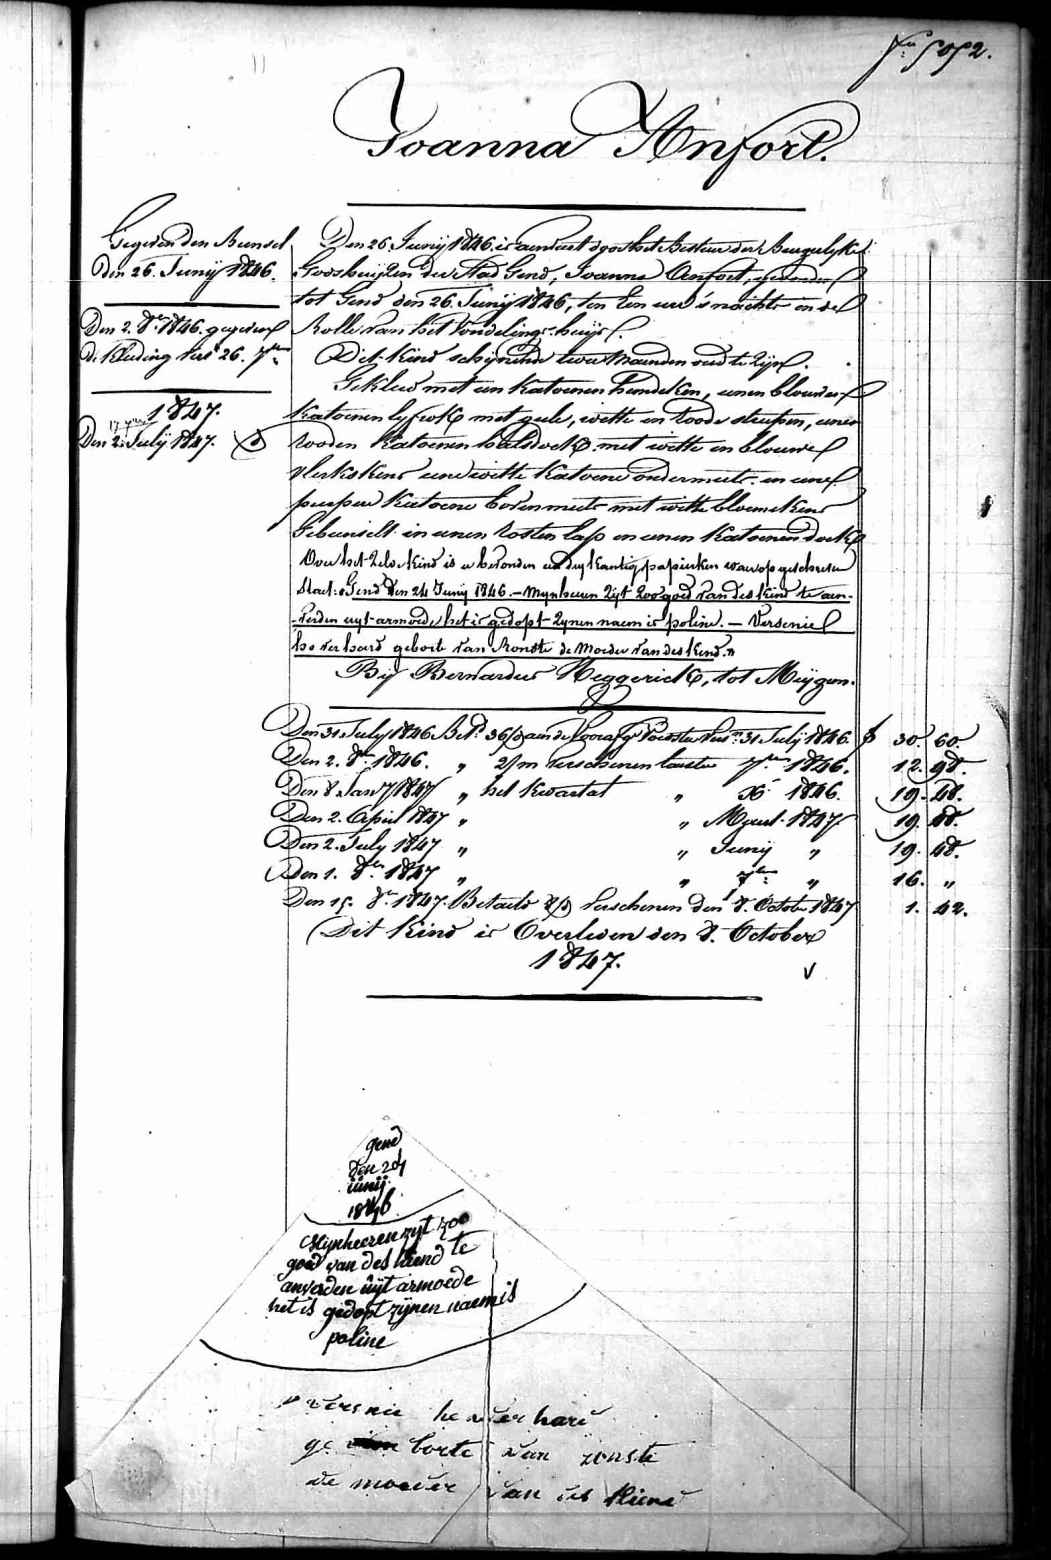 Joanna Anfort.
Gegeven den Bunsel
den 26. Junij 1846.
Den 2. 8er 1846. gegeven
de Kleeding
1847.
Den 2. Julij 1847.
Den 26. Junij 1846. is aenveert door het Bestier der Burgerlijke
Godshuijzen der Stad Gend, Joanna Anfort, gevonden
tot Gend den 26. Junij 1846, ten Een ure 's nachts in de
Rolle van het Vondelings-huijs.
Dit Kind schijnende twee Maenden oud te Zijn.
Gekleed met een Katoenen hemdeken, eenen blouwen
Katoenen lyfrok met geele, witte en Roode streepen, eenen
rooden Katoenen halsdoek met witte en blouwe
vlekskens eene witte Katoene ondermuts en eene
peirpere Katoene bovenmuts met witte bloemekens
Gebunselt in eenen rosten lap en eenen Katoenen doek
Over het Zelve Kind is er bevonden een drij kantig papierken waerop geschreven
staet: Gend den 24 Junij 1846. — Mynheeren Zijt Zoo goed van des Kind te aen-
-verden uyt armoede, het is gedopt Zynen naem is poline. — Versenie
he ver hard geborte van Ronste de Moeder van des Kind."
Bij Bernardus Heggerick, tot Meijgem.
Den 31 July 1846 31 July 1846. f 30. 60.
Den 2. 8er 1846. " verschenen 7er 1846. 12. 98.
Den 8 Jan 1847 " het Kwartaal " Xr 1846. 19. 48.
Den 2. April 1847 " " Maert 1847 19. 48.
Den 2. July 1847 " " Junij " 19. 48.
Den 1. 8er 1847 " " 7ber " 16. "
Den 15. 8er 1847. Betaeld verschenen den 8. October 1847 1. 42.
(Dit Kind is Overleden den 8. October
1847.
gend
den 24
iunij
1846
Mijnheeren zyt zoo
goed van des kiend te
anverden uijt armoede
het is gedopt zijnen naem is
poline
versenie he ver hard
ge borte van ronste
de moeder van des kiend